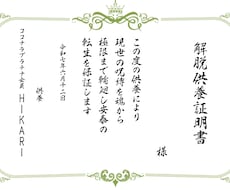 解脱供養証明書
様
この度の供養により
現世の呪縛を魂から
極限まで軽廻し安泰の
転生を保証します
令和七年六月十二日
供養
ココナラプラチナ会員
HIKARI